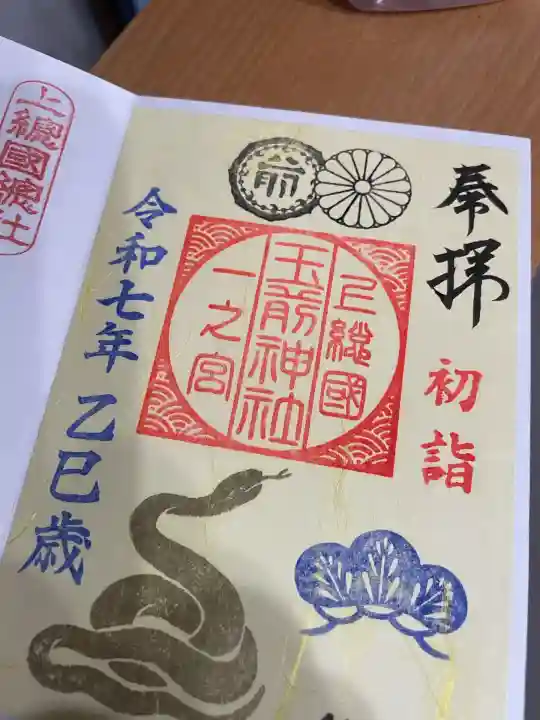 奉拝
初詣
前
上総國
玉前神社
一之宮
令和七年 乙巳歳
上總國總社